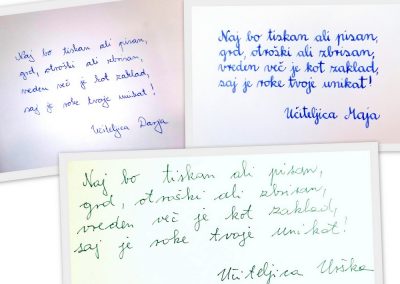 Naj bo tiskan ali pisan,
grd, otroški ali zbrisan,
vreden več je kot zaklad,
saj je roke tvoje unikat!
Učiteljica Darja
Naj bo tiskan ali pisan,
grd, otroški ali zbrisan,
vreden več je kot zaklad,
saj je roke tvoje unikat!
Učiteljica Maja
Naj bo tiskan ali pisan,
grd, otroški ali zbrisan,
vreden več je kot zaklad,
saj je roke tvoje unikat!
Učiteljica Urška